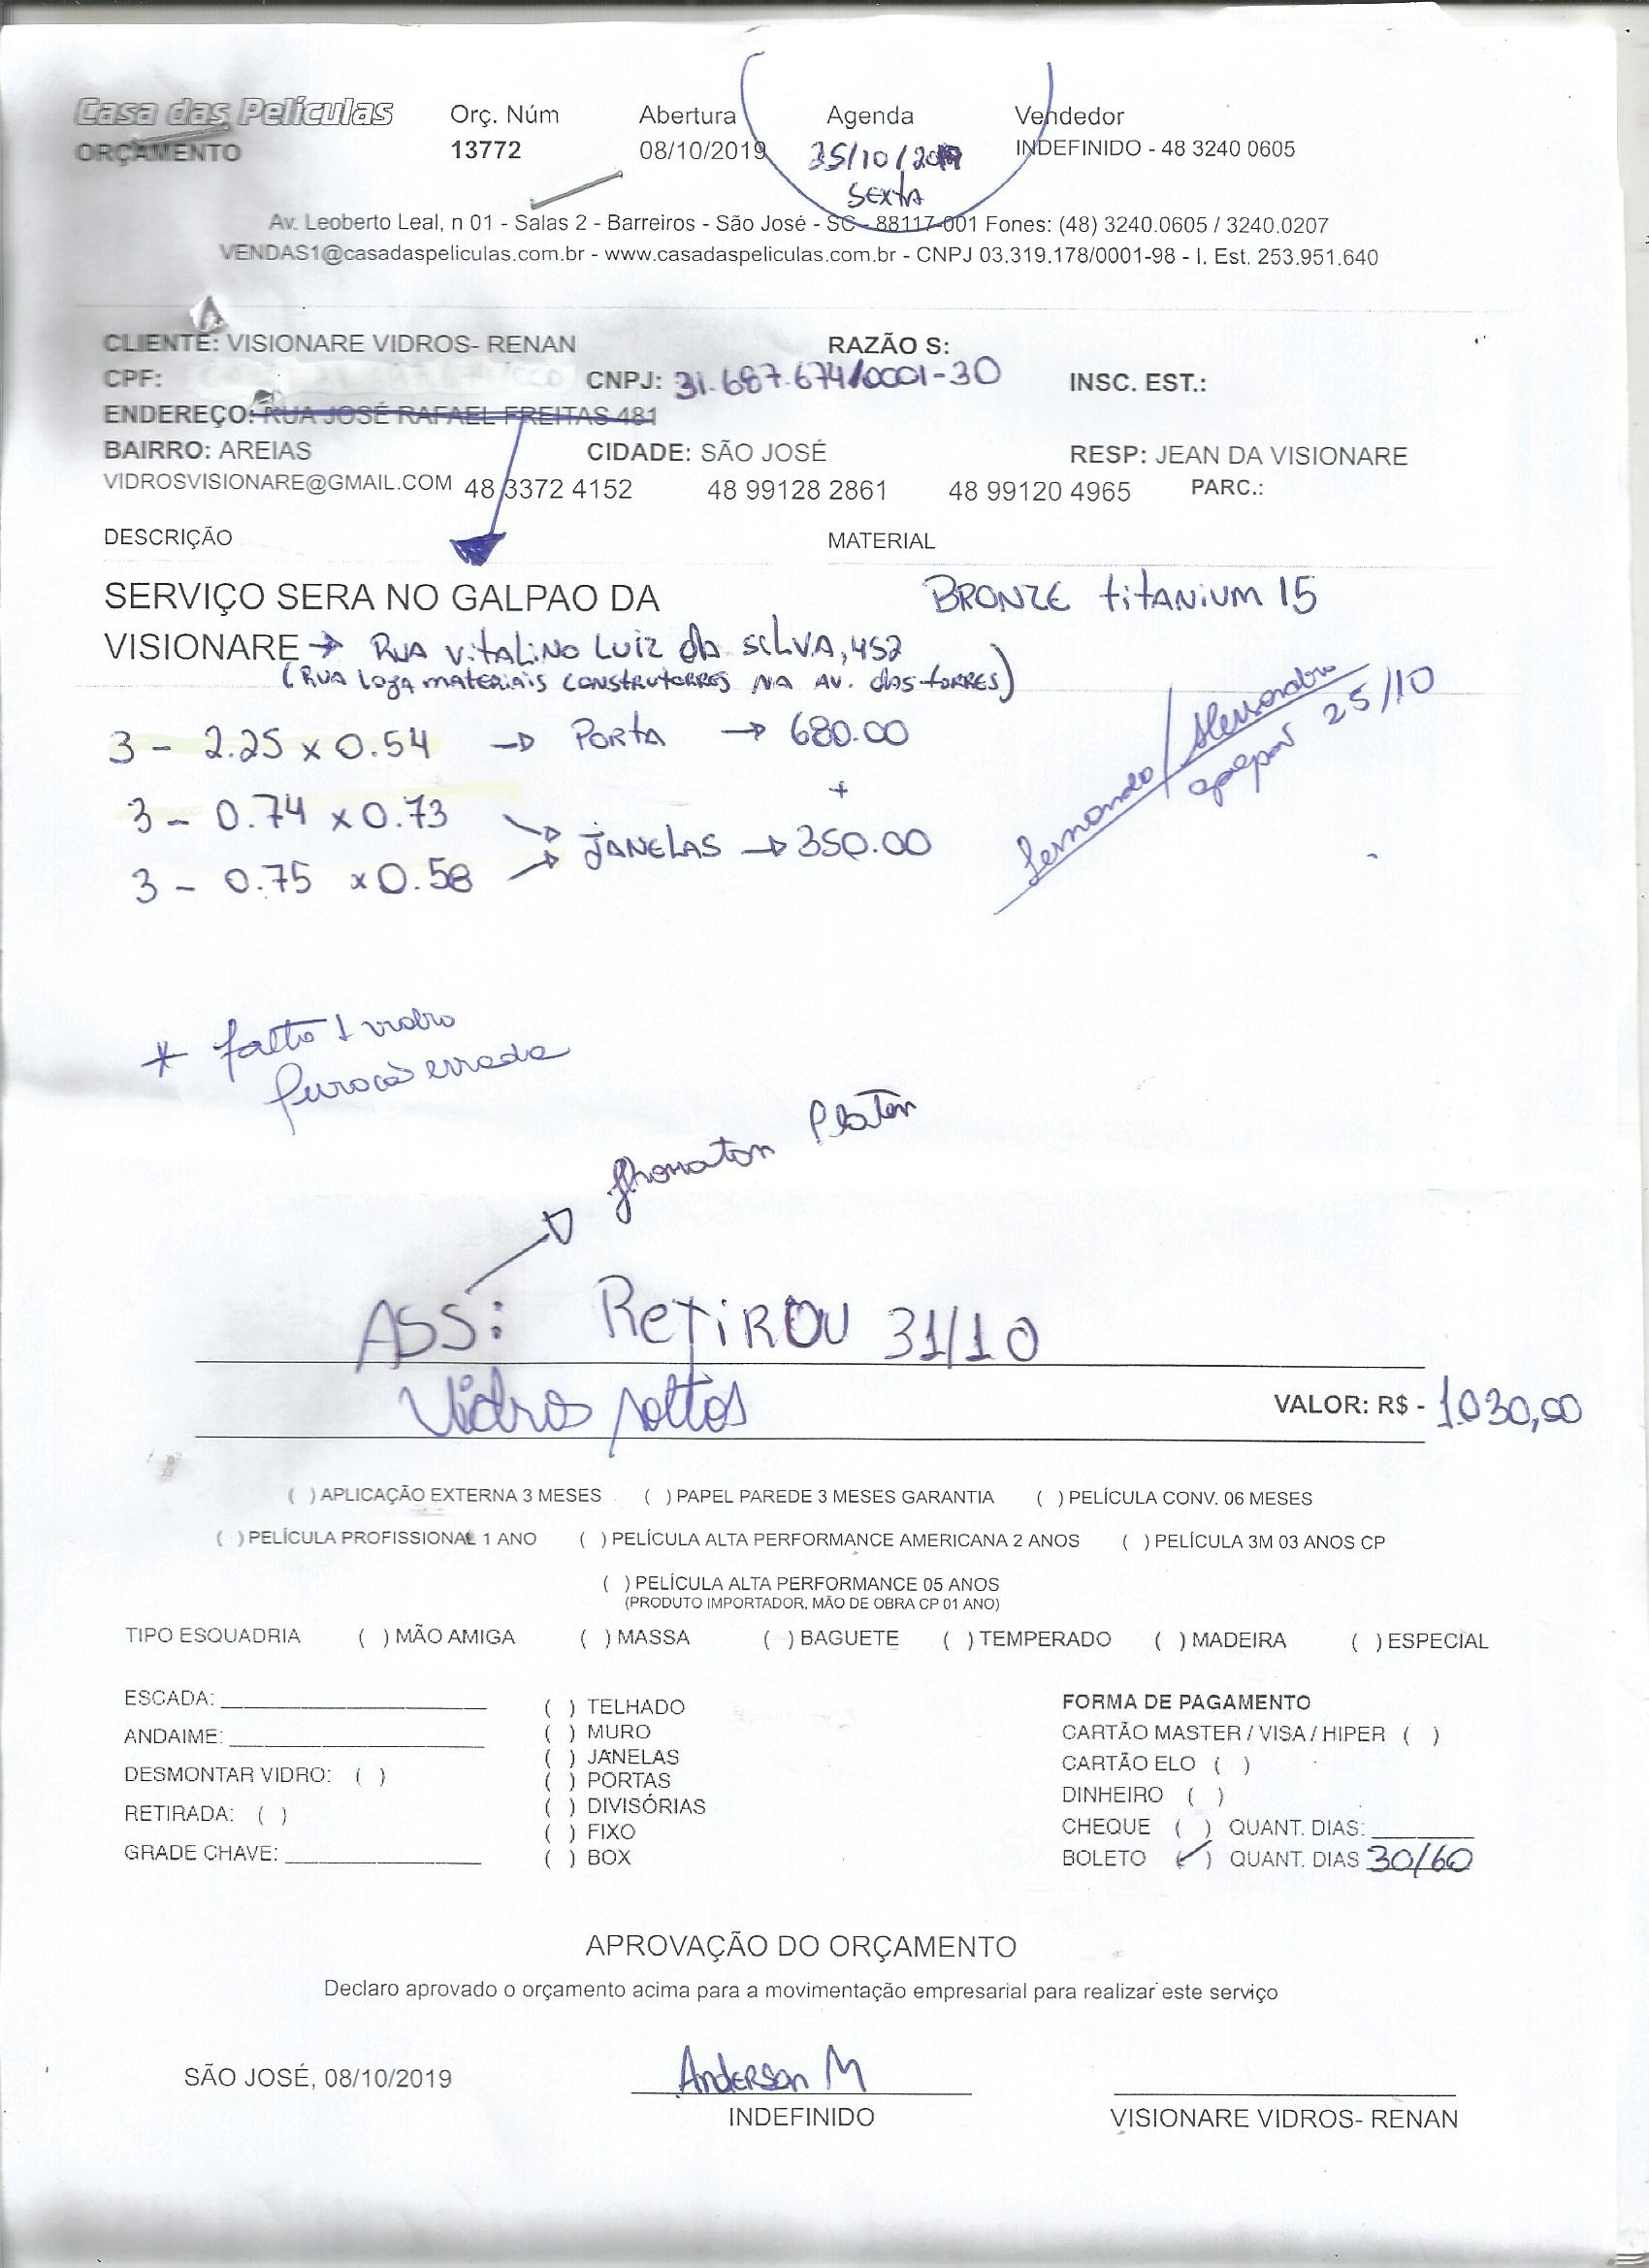 Casa das Películas
ORÇAMENTO
Orç. Núm
13772
Abertura
08/10/2019
Agenda
25/10/2019
SEXTA
Vendedor
INDEFINIDO - 48 3240 0605
Av. Leoberto Leal, n 01 - Salas 2 - Barreiros - São José - SC - 88117-001 Fones: (48) 3240.0605 / 3240.0207
VENDAS1@casadaspeliculas.com.br - www.casadaspeliculas.com.br - CNPJ 03.319.178/0001-98 - I. Est. 253.951.640
CLIENTE: VISIONARE VIDROS- RENAN RAZÃO S:
CPF: CNPJ: 31.687.674/0001-30 INSC. EST.:
ENDEREÇO: RUA JOSÉ RAFAEL FREITAS 481
BAIRRO: AREIAS CIDADE: SÃO JOSÉ RESP: JEAN DA VISIONARE
VIDROSVISIONARE@GMAIL.COM 48 3372 4152 48 99128 2861 48 99120 4965 PARC.:
DESCRIÇÃO MATERIAL
SERVIÇO SERA NO GALPAO DA BRONZE titANIUM 15
VISIONARE → RUA VitALINO LUIZ da SILVA, 452
(RUA LOJA mATERIAIS CONSTRUTORRES NA AV. das tORRES)
3 - 2.25 x 0.54 → PORTA → 680.00
+
3 - 0.74 x 0.73
JANELAS → 350.00
3 - 0.75 x 0.58
Fernando / Alessandro
25/10
* falto 1 vidro
furacão errada
Jhonatan Platen
ASS: RETIROU 31/10
Vidros soltos
VALOR: R$ - 1.030,00
( ) APLICAÇÃO EXTERNA 3 MESES ( ) PAPEL PAREDE 3 MESES GARANTIA ( ) PELÍCULA CONV. 06 MESES
( ) PELÍCULA PROFISSIONAL 1 ANO ( ) PELÍCULA ALTA PERFORMANCE AMERICANA 2 ANOS ( ) PELÍCULA 3M 03 ANOS CP
( ) PELÍCULA ALTA PERFORMANCE 05 ANOS
(PRODUTO IMPORTADOR, MÃO DE OBRA CP 01 ANO)
TIPO ESQUADRIA ( ) MÃO AMIGA ( ) MASSA ( ) BAGUETE ( ) TEMPERADO ( ) MADEIRA ( ) ESPECIAL
ESCADA:
ANDAIME:
DESMONTAR VIDRO: ( )
RETIRADA: ( )
GRADE CHAVE:
( ) TELHADO
( ) MURO
( ) JANELAS
( ) PORTAS
( ) DIVISÓRIAS
( ) FIXO
( ) BOX
FORMA DE PAGAMENTO
CARTÃO MASTER / VISA / HIPER ( )
CARTÃO ELO ( )
DINHEIRO ( )
CHEQUE ( ) QUANT. DIAS:
BOLETO (✓) QUANT. DIAS 30/60
APROVAÇÃO DO ORÇAMENTO
Declaro aprovado o orçamento acima para a movimentação empresarial para realizar este serviço
SÃO JOSÉ, 08/10/2019
Anderson M
INDEFINIDO
VISIONARE VIDROS- RENAN